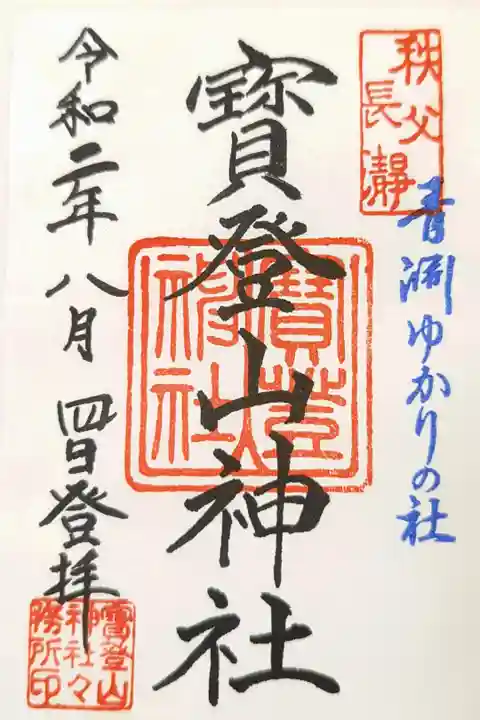 秩父
長瀞
青渊ゆかりの社
寳登山神社
寳登山
神社
令和二年八月四日登拝
寳登山
神社々
務所印